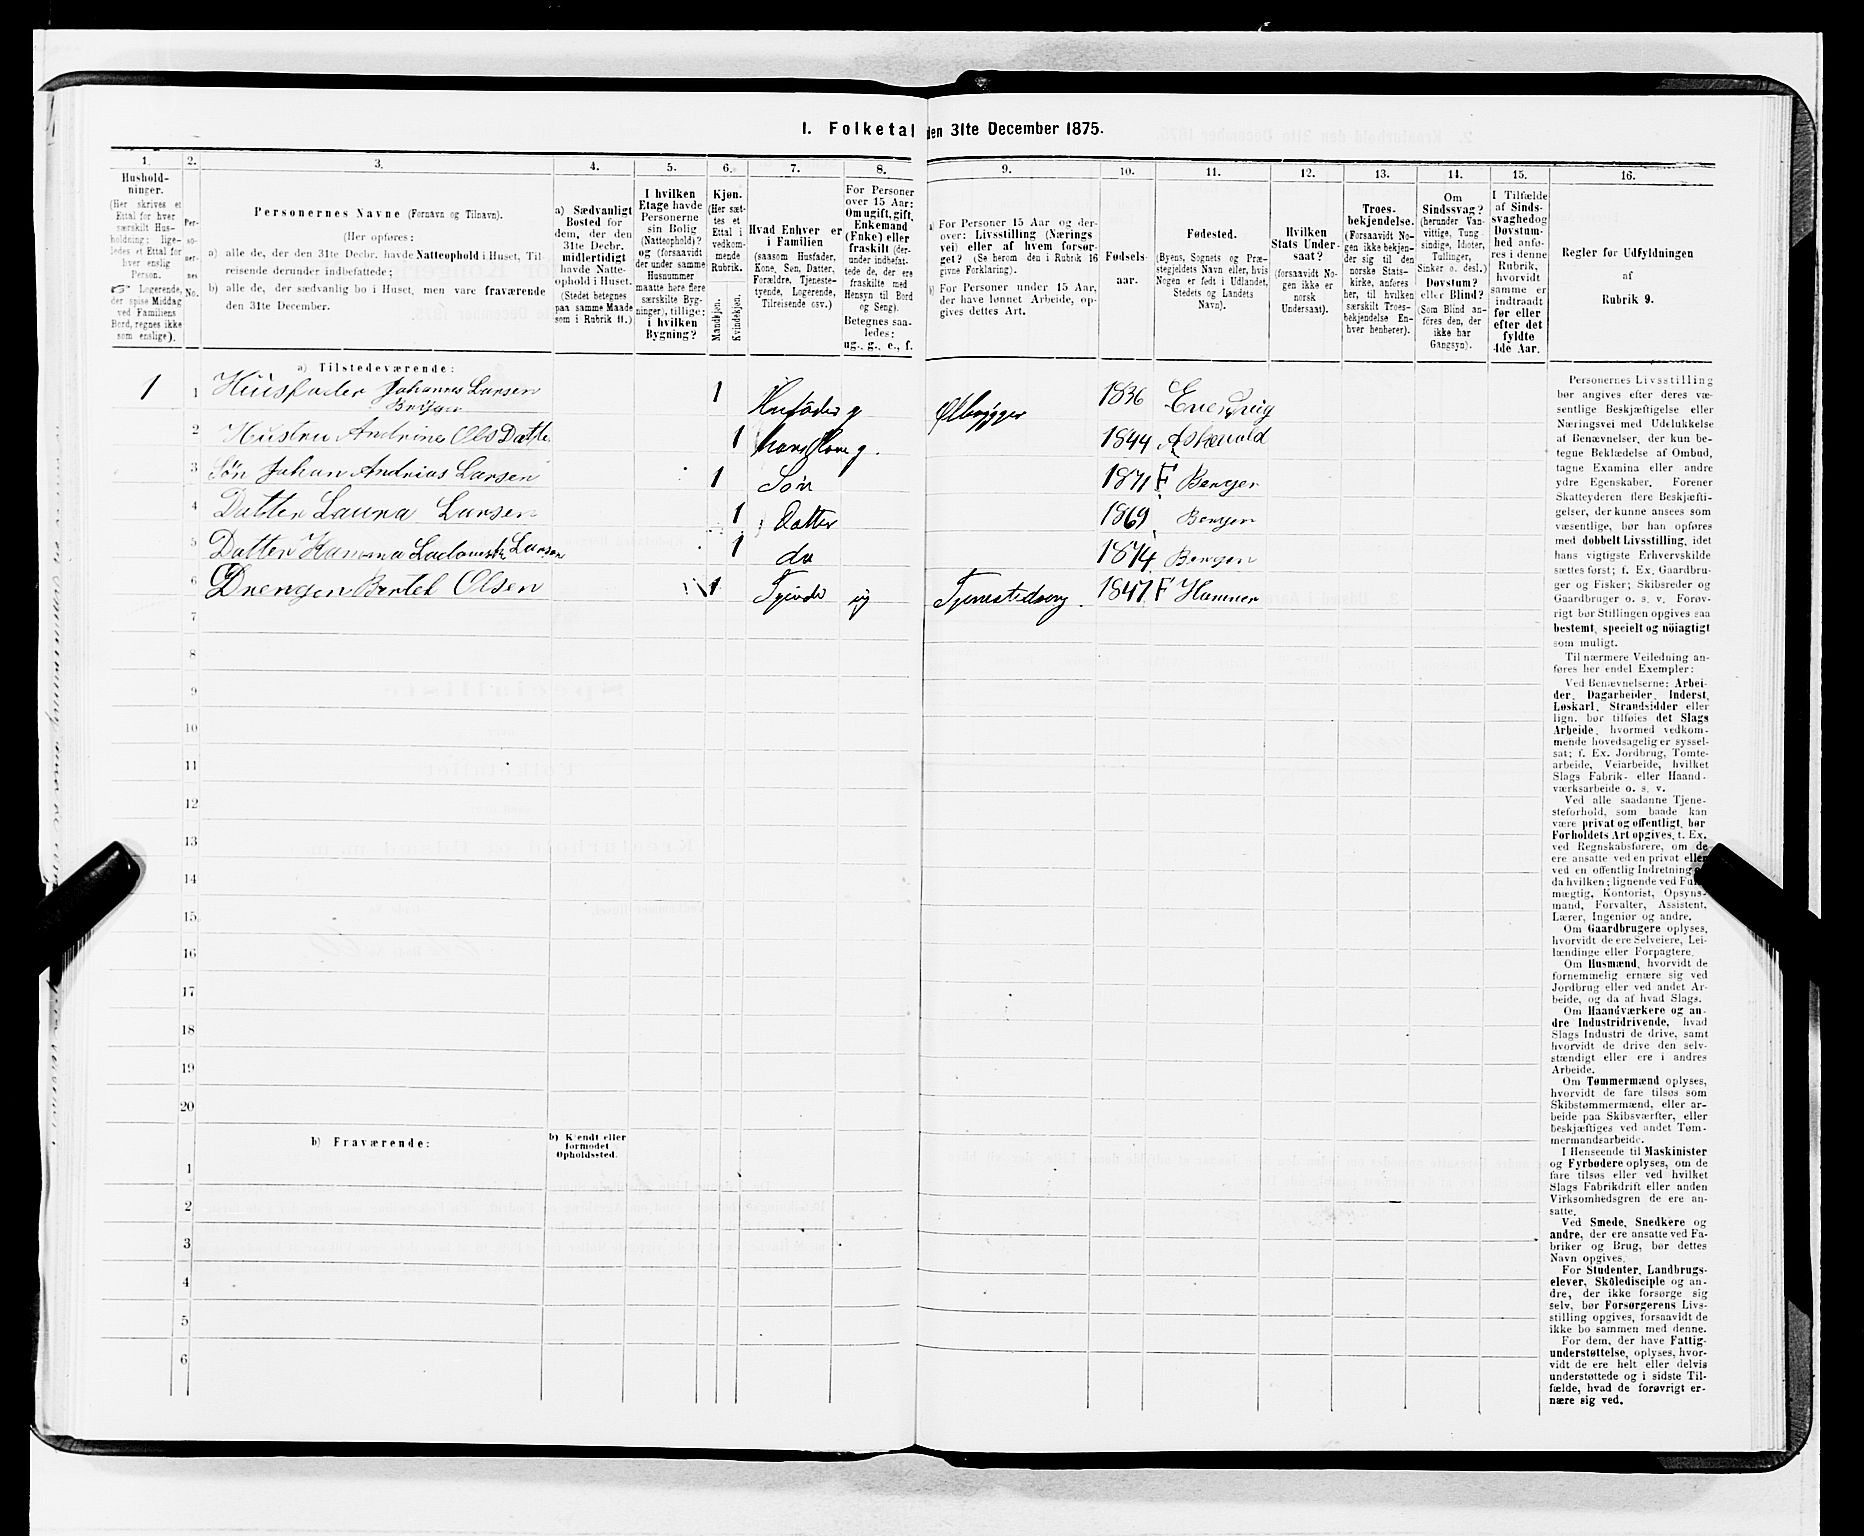 1. Folketal den 31te December 1875.
1.
Hushold-
ninger.
(Her skrives et
Ettal for hver
særskilt Hus-
holdning; lige-
ledes et Ettal for
hver enslig
Person.
Logerende,
der spise Middag
ved Familiens
Bord, regnes ikke
som enslige).
2.
Per-
so-
ner-
nes
No.
3.
Personernes Navne (Fornavn og Tilnavn).
(Her opføres:
a) alle de, der den 31te Decbr. havde Natteophold i Huset, Til-
reisende derunder indbefattede;
b) alle de, der sædvanlig bo i Huset, men vare fraværende
den 31te December.
4.
a) Sædvanligt
Bosted for
dem, der den
31te Decbr.
midlertidigt
havde Natte-
ophold i Huset.
(Stedet betegnes
paa samme Maade
som i Rubrik 11.)
5.
I hvilken
Etage havde
Personerne
sin Bolig
(Natteophold)?
og (forsaavidt
der under samme
Husnummer
maatte høre flere
særskilte Byg-
ninger), tillige:
i hvilken
Bygning?
6.
Kjøn.
(Her sæt-
tes et
Ettal i
vedkom-
mende
Rubrik.
Mandkjøn.
Kvindekjøn.
7.
Hvad Enhver er
i Familien
(saasom Husfader,
Kone, Søn, Datter,
Forældre, Tjeneste-
tyende, Logerende,
Tilreisende osv.)
8.
For Personer
over 15 Aar:
Om ugift, gift,
Enkemand
(Enke) eller
fraskilt (der-
under indbefat-
tede de, der ere
fraskilte med
Hensyn til Bord
og Seng).
Betegnes saa-
ledes:
ug., g., e., f.
9.
a) For Personer 15 Aar og der-
over: Livsstilling (Nærings
vei) eller af hvem forsør-
get? (Se herom den i Rubrik 16
givne Forklaring).
b) For Personer under 15 Aar,
der have lønnet Arbeide, op-
gives dettes Art.
10.
Fødsels-
aar.
11.
Fødested.
(Byens, Sognets og Præ-
stegjeldets Navn eller, hvis
Nogen er født i Udlandet,
Stedets og Landets
Navn).
12.
Hvilken
Stats Under-
saat?
(forsaavidt No-
gen ikke er
norsk
Undersaat).
13.
Troes-
bekjendelse.
(Forsaavidt No-
gen ikke bekjen-
der sig til den
norske Stats-
kirke, anføres
her, til hvilken
særskilt Troes-
bekjendelse En-
hver henhører).
14.
Om
Sindssvag?
(herunder Van-
vittige, Tung
sindige, Idioter,
Tullinger,
Sinker o. desl.)
Døvstum?
eller Blind?
(Som Blind an-
føres den, der
ikke har
Gangsyn).
15.
I Tilfælde
af Sinds-
svaghed og
Døvstum-
hed anfø-
res i denne
Rubrik,
hvorvidt
samme er
indtraadt
før eller
efter det
fyldte
4de Aar.
16.
Regler for Udfyldningen
af
Rubrik 9.
a) Tilstedeværende:
1 1 Husfader Johannes Larsen 1 Husfader g Ølbrygger 1836
2 Hustru Andrine Ols Datter 1 Kone g. 1844 Askevold
3 Søn Johan Andrias Larsen 1 Søn 1871 F Bergen
4 Datter Laura Larsen 1 Datter 1869 Bergen
5 Datter Hanna Larsen 1 do 1874 Bergen
6 Drengen Bertel Olsen 1 ug Tjenestedreng. 1847 F Hammer
7
8
9
10
11
12
13
14
15
16
17
18
19
20
b) Fraværende:
b) Kjendt eller
formodet
Opholdssted.
1
2
3
4
5
6
Personernes Livsstilling
bør angives efter deres væ-
sentlige Beskjæftigelse eller
Næringsvei med Udelukkelse
af Benævnelser, der kun be-
tegne Beklædelse af Ombud,
tagne Examina eller andre
ydre Egenskaber. Forener
Skatteyderen flere Beskjæfti-
gelser, der kunne ansees som
væsentlige, bør han opføres
med dobbelt Livsstilling, idet
hans vigtigste Erhvervskilde
sættes først; f. Ex. Gaardbru-
ger og Fisker; Skibsreder og
Gaardbruger o. s. v. Forøv-
rigt bør Stillingen opgives saa
bestemt, specielt og nöiagtigt
som muligt.
Til nærmere Veiledning an-
føres her endel Exempler:
Ved Benævnelserne: Arbei-
der, Dagarbeider, Inderst,
Løskarl, Strandsidder eller
lign. bør tilføies det Slags
Arbeide, hvormed vedkom-
mende hovedsagelig er syssel-
sat; f. Ex. Jordbrug, Tomte-
arbeide, Veiarbeide, hvilket
Slags Fabrik- eller Haand-
værksarbeide o. s. v.
Ved alle saadanne Tjene-
steforhold, som baade kan
være privat og offentligt, bør
Forholdets Art opgives, t. Ex.
ved Regnskabsførere, om de
ere ansatte ved en privat eller
ved en offentlig Indretning og
da hvilken; lignende ved Fuld-
mægtig, Kontorist, Opsyns-
mand, Forvalter, Assistent,
Lærer, Ingeniør og andre.
Om Gaardbrugere oplyses,
hvorvidt de ere Selveiere, Lei-
lændinge eller Forpagtere.
Om Husmænd, hvorvidt de
fornemmelig ernære sig ved
Jordbrug eller ved andet Ar-
beide, og da af hvad Slags.
Om Haandværkere og an-
dre Industridrivende, hvad
Slags Industri de drive, samt
hvorvidt de drive den selv-
stændigt eller ere i andres
Arbeide.
Om Tømmermænd oplyses,
hvorvidt de fare tilsøs som
Skibstømmermænd, eller ar-
beide paa Skibsværfter, eller
beskjæftiges ved andet Tøm-
mermandsarbeide.
I Henseende til Maskinister
og Fyrbødere oplyses, om de
fare tilsøs eller ved hvilket
Slags Fabrikdrift eller anden
Virksomhedsgren de ere an-
satte.
Ved Smede, Snedkere og
andre, der ere ansatte ved Fa-
briker og Brug, bør dettes
Navn opgives.
For Studenter, Landbrugs-
elever, Skóledisciple og an-
dre, der ikke forsørge sig
selv, bør Forsørgerens Livs-
stilling opgives, forsaavidt de
ikke bo sammen med denne.
For dem, der have Fattig-
understøttelse, oplyses, hvor-
vidt de ere helt eller delvis
understøttede og i sidste Til-
fælde, hvad de forøvrigt er-
nære sig ved.